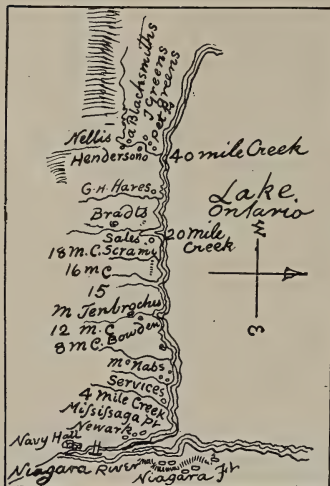 a Blacksmiths
J Greens
Pet Greens
Nellis
Henderson
40 mile Creek
G. H. Hares
Lake
Ontario
Bradts
Sales
20 mile
Creek
18 M. C. Scram
16 m C
15
m Tenbrochs
12 m. C
8 M C. Bowden
McNabs
Services
4 Mile Creek
Missisaga Pt
Newark
Navy Hall
Niagara River
Niagara Ft